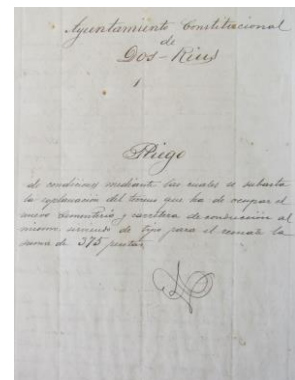 Ayuntamiento Constitucional
de
Dos-Rius
1
Pliego
de condiciones mediante las cuales se subasta
la explanacion del terreno que ha de ocupar el
nuevo Cementerio y carretera de conduccion al
mismo sirviendo de tipo para el remate la
suma de 373 pesetas